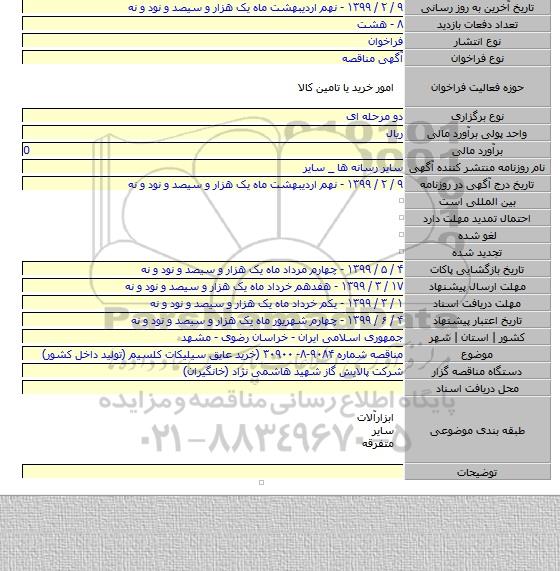 تاریخ آخرین به روز رسانی ۹ / ۲ / ۱۳۹۹ - نهم اردیبهشت ماه یک هزار و سیصد و نود و نه
تعداد دفعات بازدید ۸ - هشت
نوع انتشار فراخوان
نوع فراخوان آگهی مناقصه
حوزه فعالیت فراخوان امور خرید یا تامین کالا
نوع برگزاری دو مرحله ای
واحد پولی برآورد مالی ریال
برآورد مالی 0
نام روزنامه منتشر کننده آگهی سایر رسانه ها _ سایر
تاریخ درج آگهی در روزنامه ۹ / ۲ / ۱۳۹۹ - نهم اردیبهشت ماه یک هزار و سیصد و نود و نه
بین المللی است
احتمال تمدید مهلت دارد
لغو شده
تجدید شده
تاریخ بازگشایی پاکات ۴ / ۵ / ۱۳۹۹ - چهارم مرداد ماه یک هزار و سیصد و نود و نه
مهلت ارسال پیشنهاد ۱۷ / ۳ / ۱۳۹۹ - هفدهم خرداد ماه یک هزار و سیصد و نود و نه
مهلت دریافت اسناد ۱ / ۳ / ۱۳۹۹ - یکم خرداد ماه یک هزار و سیصد و نود و نه
تاریخ اعتبار پیشنهاد ۴ / ۶ / ۱۳۹۹ - چهارم شهریور ماه یک هزار و سیصد و نود و نه
کشور | استان | شهر جمهوری اسلامی ایران - خراسان رضوی - مشهد
موضوع مناقصه شماره ۹۰۸۴-۸-۳۰۹۰۰ (خرید عایق سیلیکات کلسیم (تولید داخل کشور)
دستگاه مناقصه گزار شرکت پالایش گاز شهید هاشمی نژاد (خانگیران)
محل دریافت اسناد
طبقه بندی موضوعی ابزارآلات
سایر
متفرقه
توضیحات
ParsNamadData
پایگاه اطلاع رسانی مناقصه و مزایده
۰۲۱-۸۸۳۴۹۶۷۰-۵